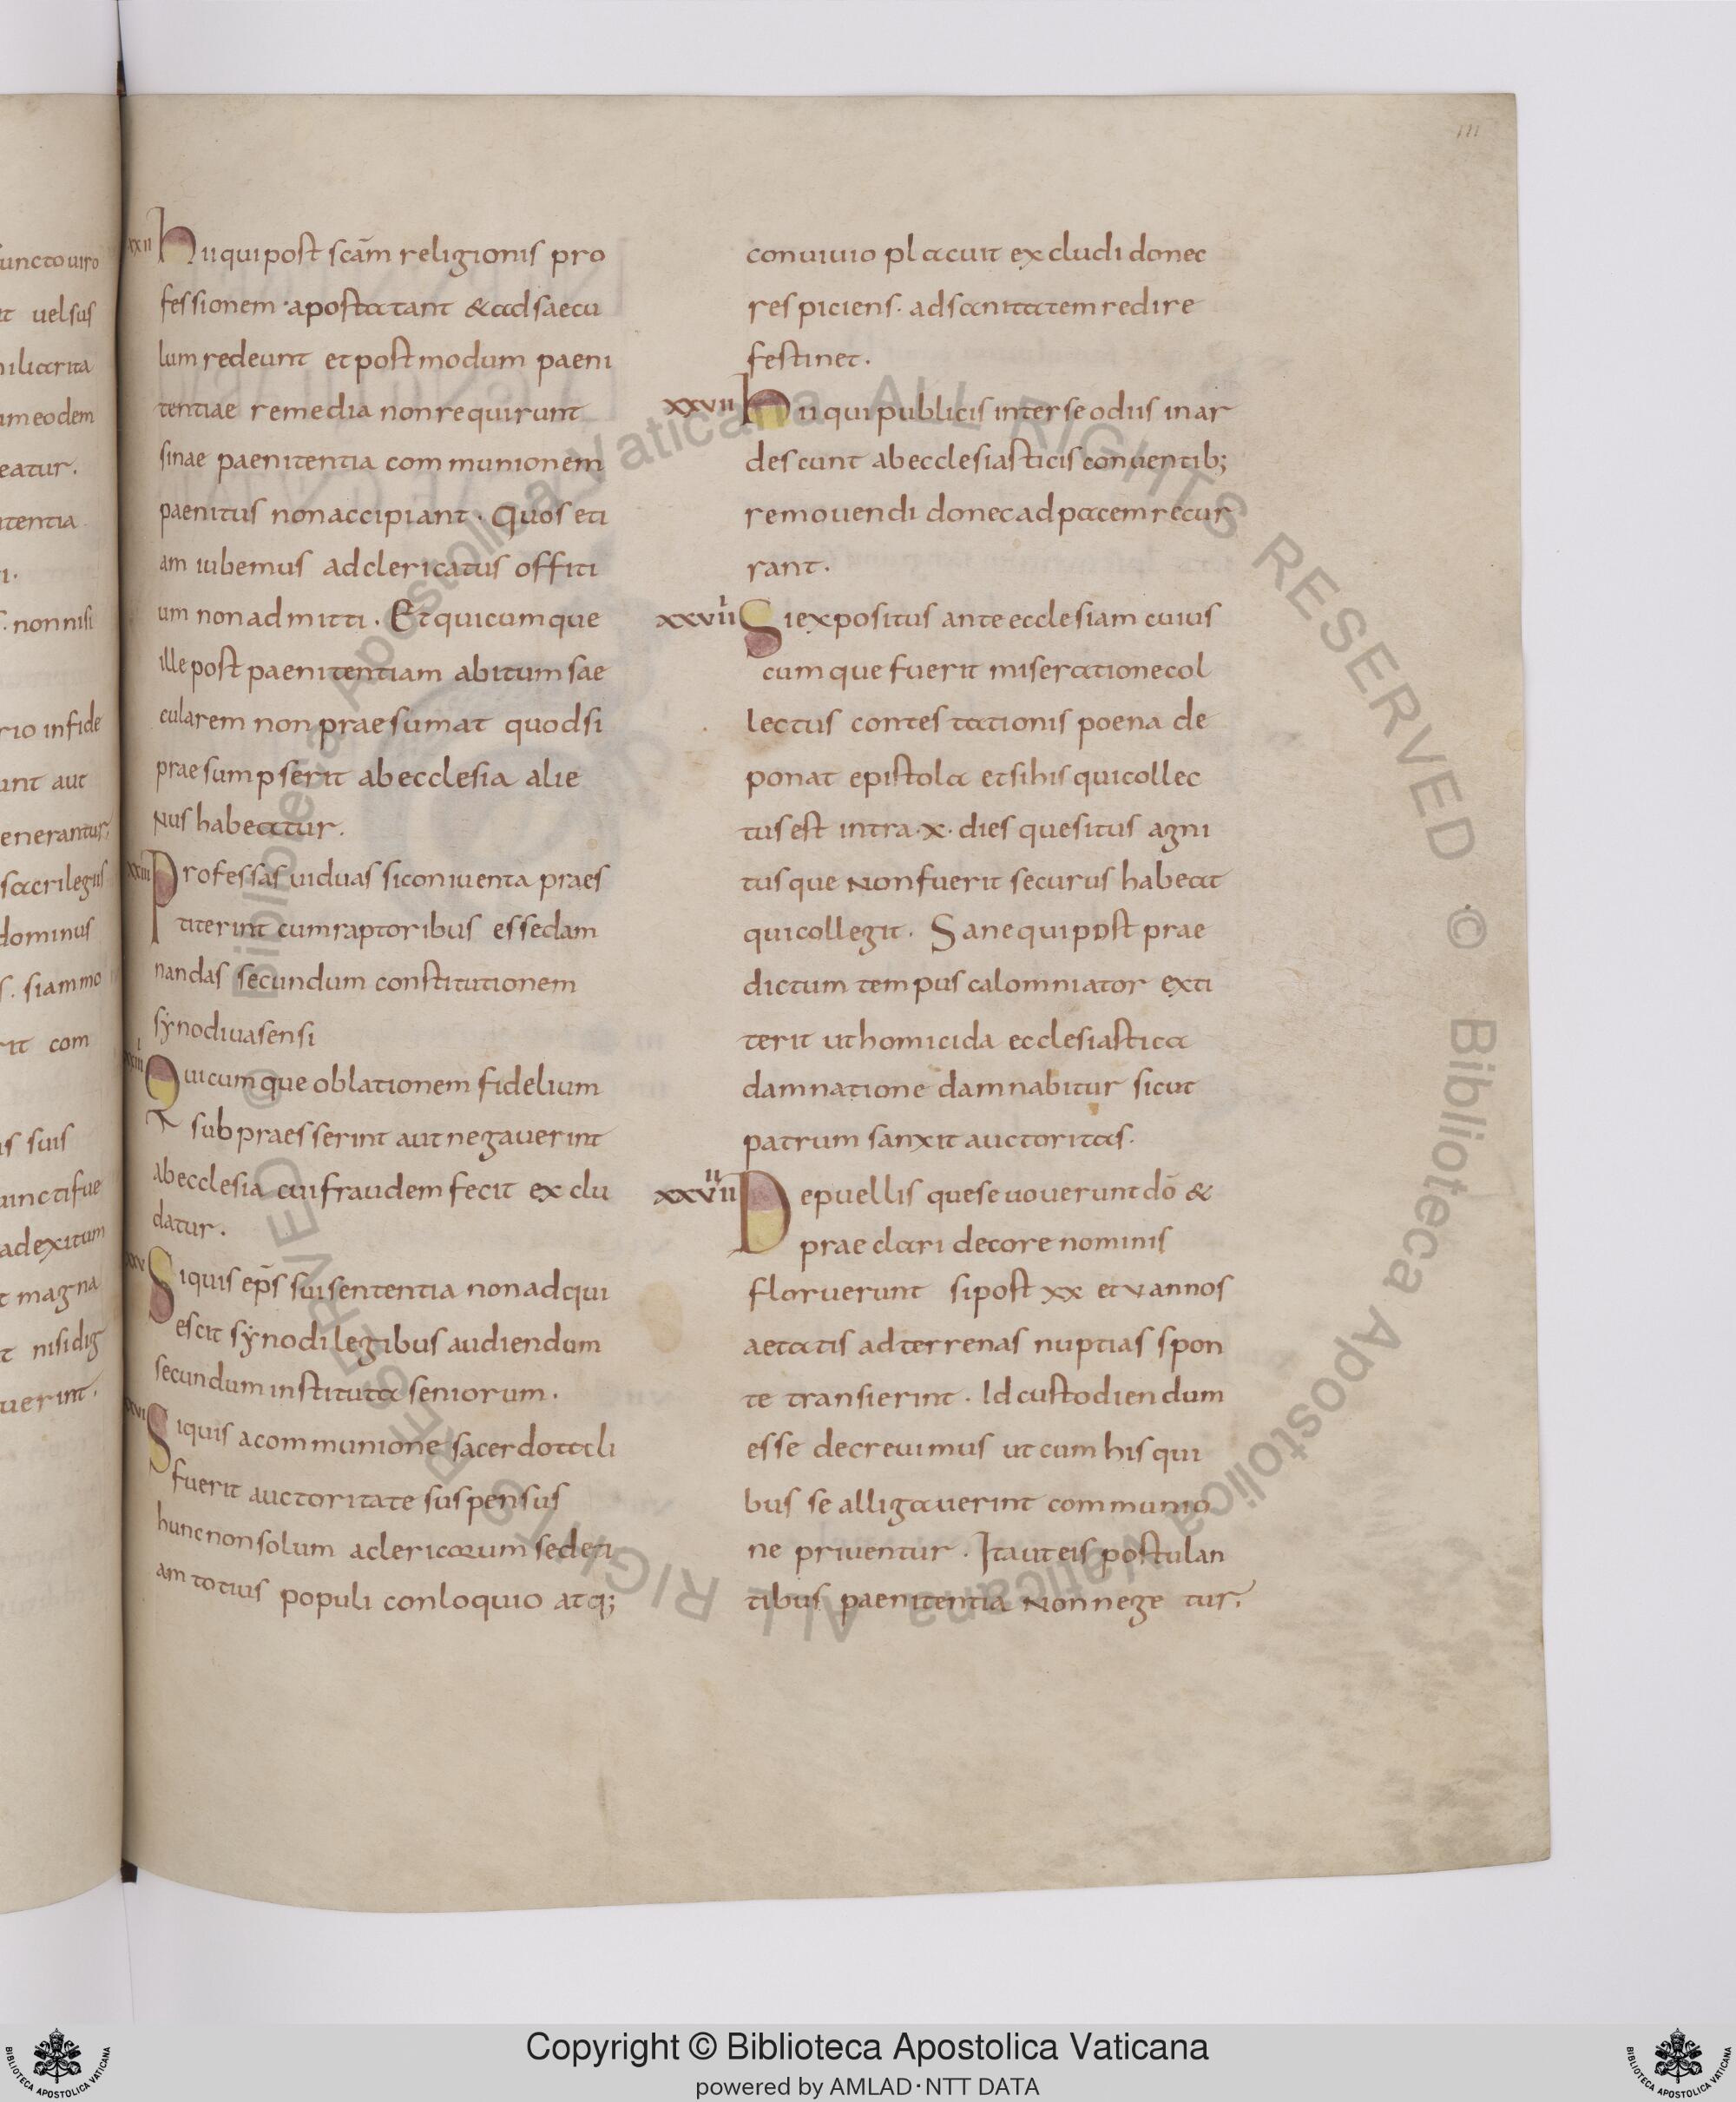 111
xxii hii qui post scām religionis pro
fessionem · apostatant & ad saecu
lum redeunt et post modum paeni
tentiae remedia non requirunt
sinae paenitentia communionem
paenitus non accipiant · Quos eti
am iubemus ad clericatus offiti
um non admitti · Et quicumque
ille post paenitentiam abitum sae
cularem non praesumat quod si
praesumpserit ab ecclesia alie
nus habeatur.
xxiii Professas viduas si coniventa praes
titerint cum raptoribus esse dam
nandas secundum constitutionem
synodi vasensi
xxiiii Quicumque oblationem fidelium
subpraesserint aut negaverint
ab ecclesia cui fraudem fecit exclu
datur.
xxv Si quis ep̄s sui sententia non adqui
escit synodi legibus audiendum
secundum instituta seniorum.
xxvi Si quis a communione sacerdotali
fuerit auctoritate suspensus
hunc non solum a clericorum sed eti
am totius populi conloquio atq;
convivio placuit excludi donec
respiciens · ad sanitatem redire
festinet.
xxvii hii qui publicis inter se odiis inar
descunt ab ecclesiasticis conventib;
removendi donec ad pacem recur
rant.
xxviii Si expositus ante ecclesiam cuius
cumque fuerit miseratione col
lectus contestationis poena de
ponat epistola et si his qui collec
tus est intra · x · dies quesitus agni
tusque non fuerit securus habeat
qui collegit. Sane qui post prae
dictum tempus calomniator exti
terit ut homicida ecclesiastica
damnatione damnabitur sicut
patrum sanxit auctoritas.
xxviiii De puellis que se voverunt dō &
praeclari decore nominis
floruerunt si post xx et v annos
aetatis ad terrenas nuptias spon
te transierint · Id custodiendum
esse decrevimus ut cum his qui
bus se alligaverint communio
ne priventur · Ita ut eis postulan
tibus paenitentia non negetur.
uncto viro
it vel sus
iliarita
um eodem
eatur.
itentia
i.
non nisi
rio infide
unt aut
enerantur;
sacrilegiis
dominus
s. si ammo
rit com
is suis
uincti fue
ad exitum
t magna
t nisi dig
uerint.
© Biblioteca Apostolica Vaticana ALL RIGHTS RESERVED © Biblioteca Apostolica Vaticana ALL RIGHTS RESERVED
Copyright © Biblioteca Apostolica Vaticana
powered by AMLAD·NTT DATA
BIBLIOTECA APOSTOLICA VATICANA
BIBLIOTECA APOSTOLICA VATICANA